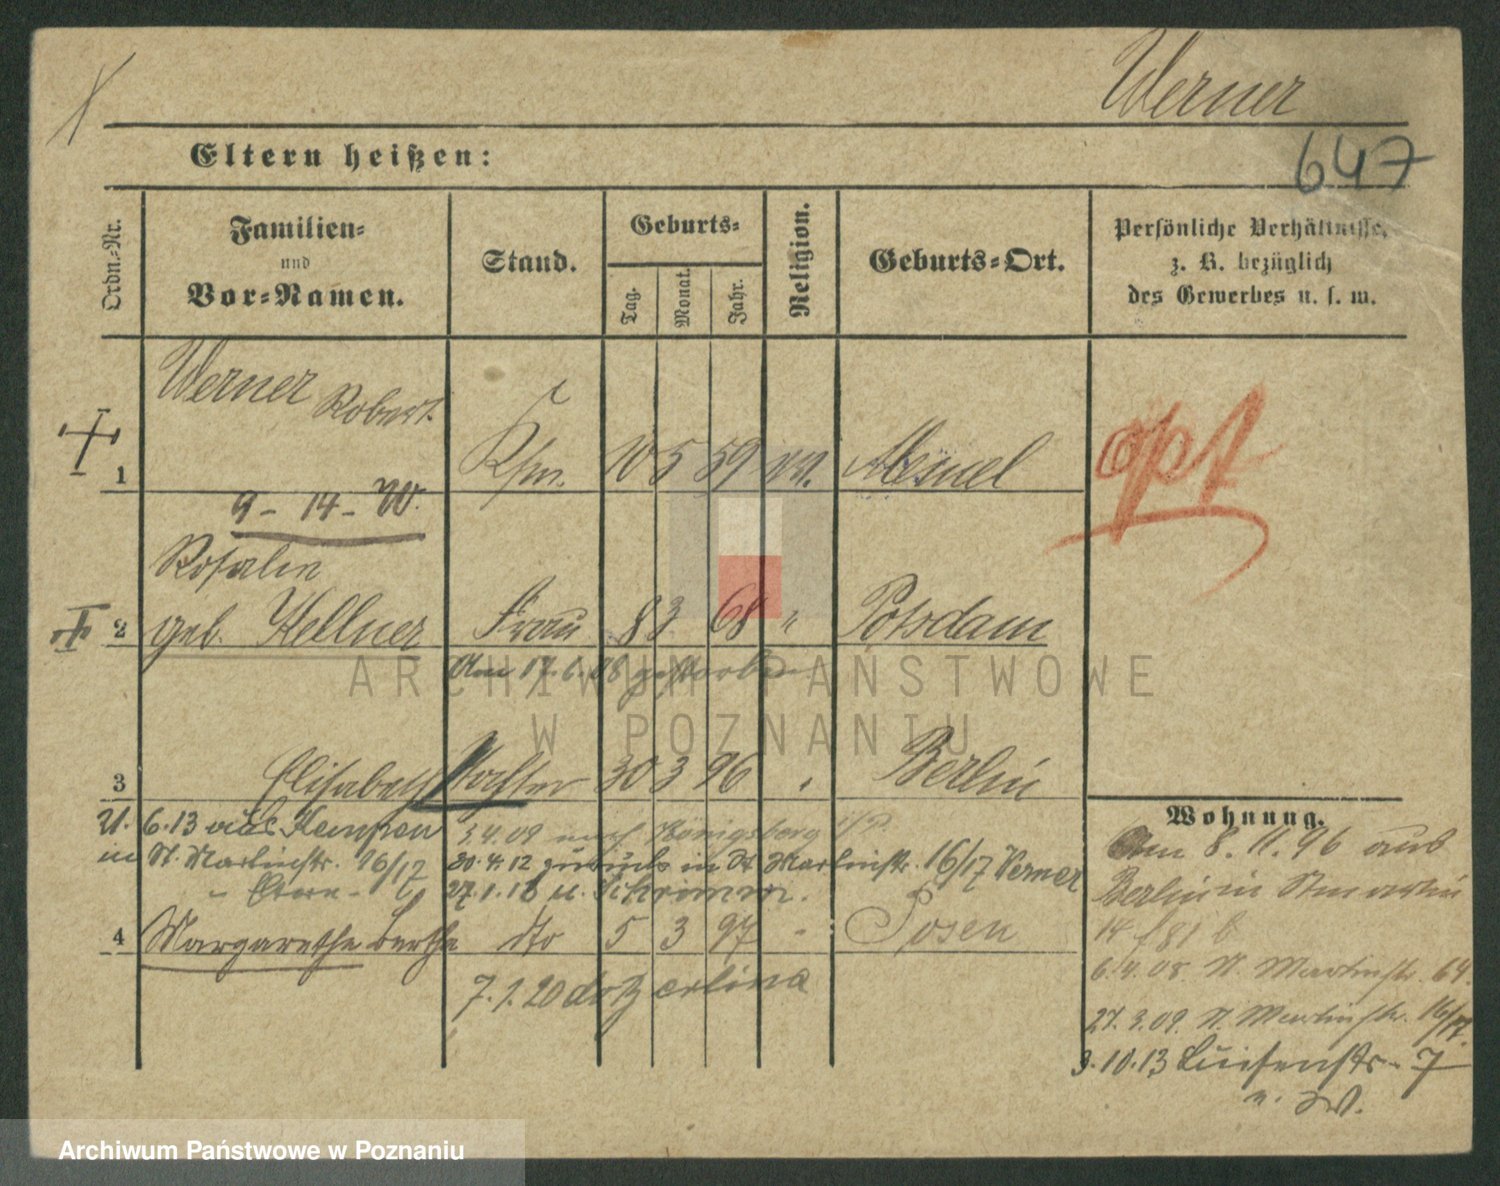 Werner
647
Eltern heißen:
Ordn.-Nr.
Familien-
und
Vor-Namen.
Stand.
Geburts-
Tag.
Monat.
Jahr.
Religion.
Geburts-Ort.
Persönliche Verhältnisse,
z. B. bezüglich
des Gewerbes u. s. w.
Werner Robert.
1 Kfm. 10 5 59 Memel
opt
9 - 14 - W.
Rosalie
2 geb. Kellner Frau 8 3 68 " Potsdam
Am 17.6.08 gestorben
3 Elisabeth Tochter 30 3 96 Berlin
6.13 aus Kempen 3.4.09 nach Königsberg i/P.
in St. Martinstr. 16/17 20.4.12 zurück in St Martinstr. 16/17 Werner
" Eltern - 27.1.18 u. Schrimm.
4 Margarethe Bertha dto 5 3 97 " Posen
7.1.20
Wohnung.
Am 8.11.96 aus
Berlin in St Martin
14
6.4.08. St. Martinstr. 64.
27.3.09. St. Martinstr. 16/17.
3.10.13 Luisenstr. 7
ARCHIWUM PAŃSTWOWE
W POZNANIU
Archiwum Państwowe w Poznaniu